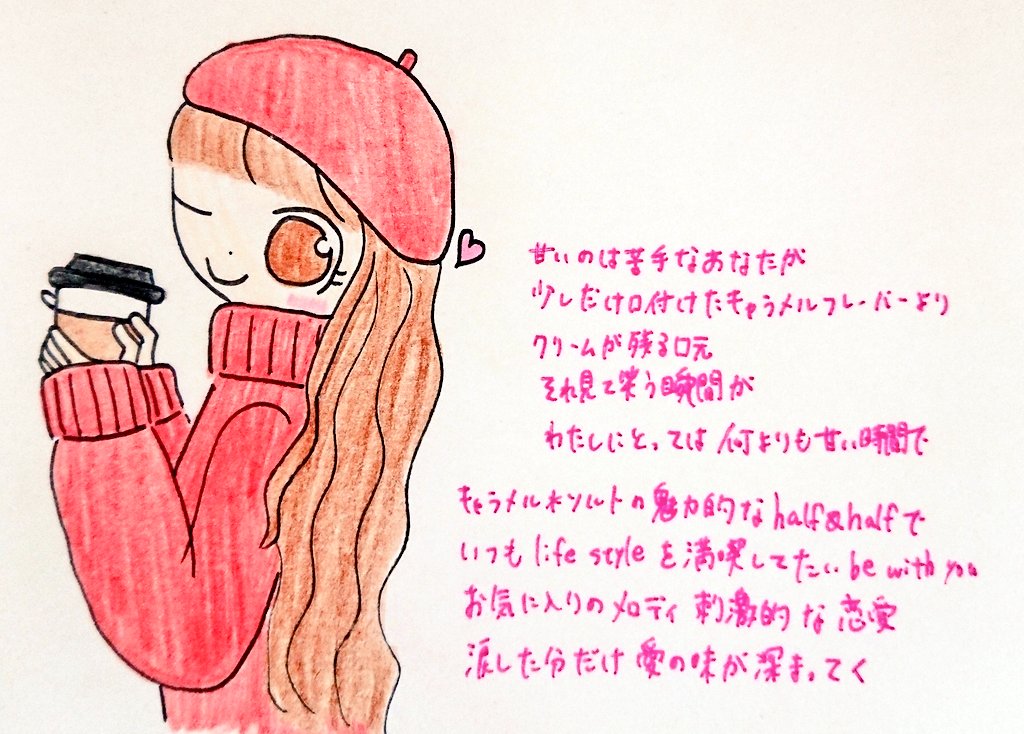 甘いのは苦手なあなたが
少しだけ口付けたキャラメルフレーバーより
クリームが残る口元
それ見て笑う瞬間が
わたしにとっては何よりも甘い時間で
キャラメル×ソルトの魅力的なhalf&halfで
いつもlife styleを満喫してたい be with you
お気に入りのメロディ 刺激的な恋愛
涙した分だけ愛の味が深まってく